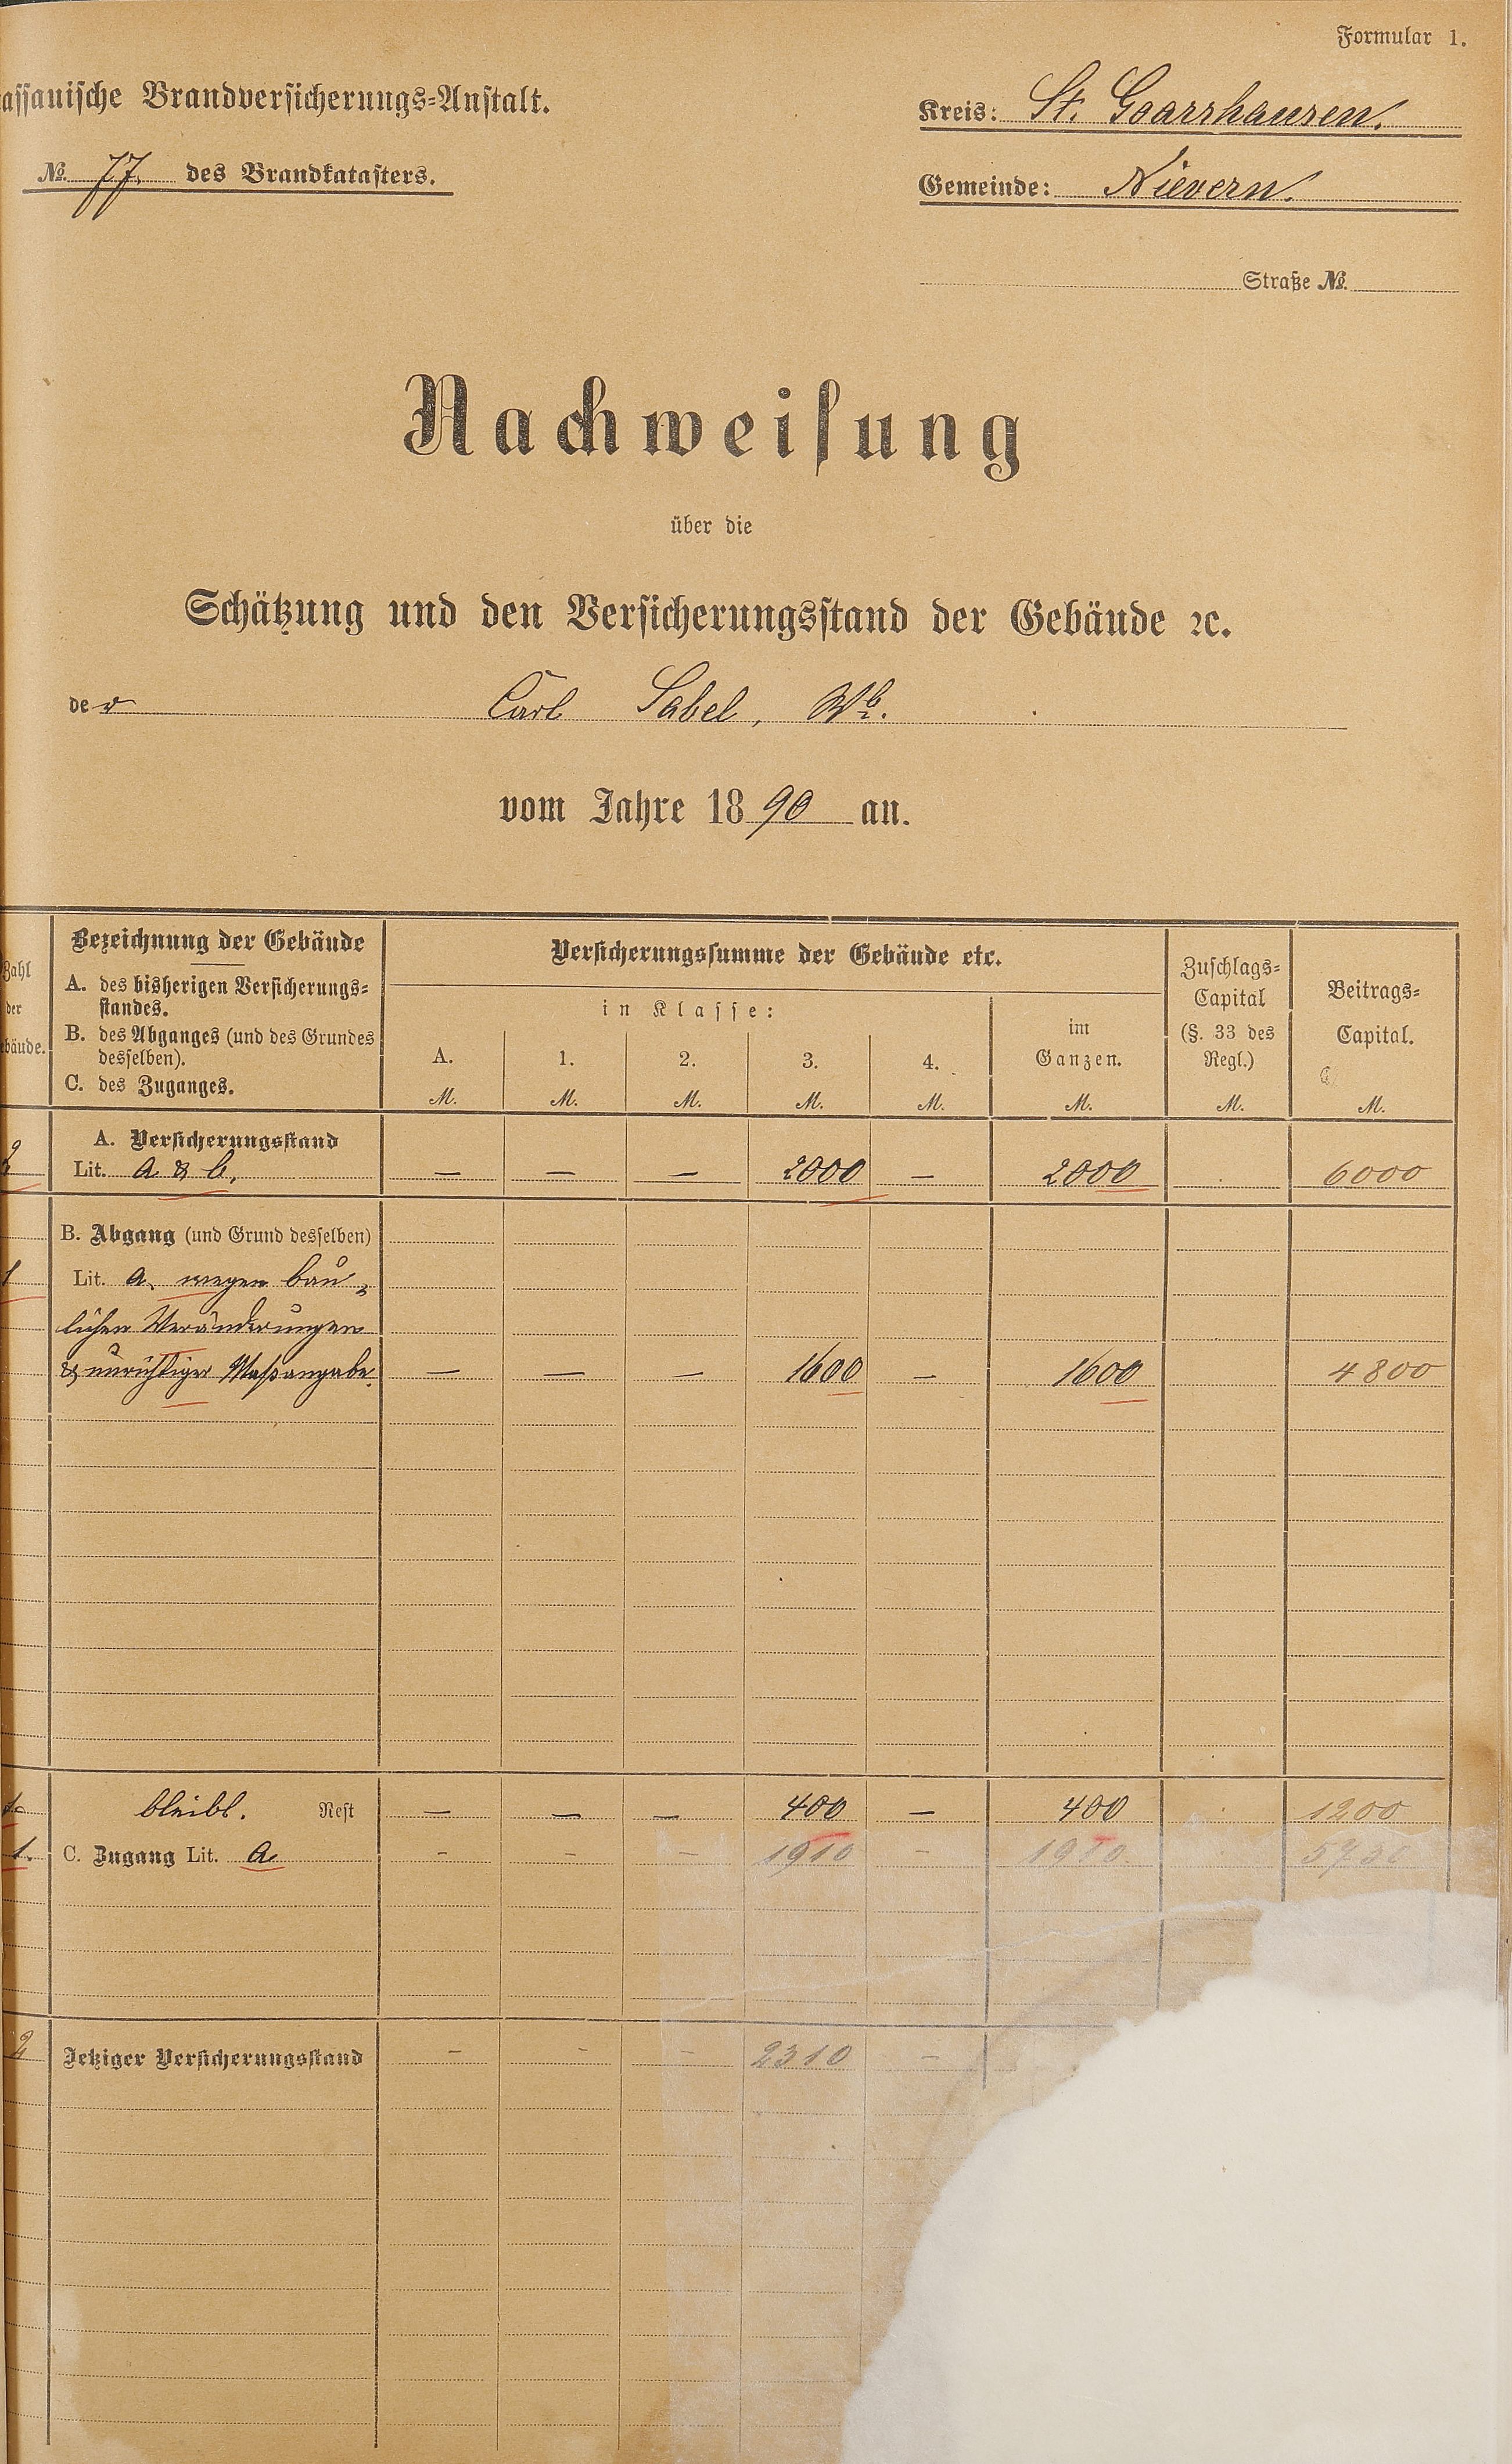 Formular 1.
assauische Brandversicherungs-Anstalt.
Kreis: St. Goarshausen.
No. 77. des Brandkatasters.
Gemeinde: Nievern.
Straße No.
Nachweisung
über die
Schätzung und den Versicherungsstand der Gebäude ꝛc.
der Carl Sabel, Wb.
vom Jahre 1890 an.
Zahl der ebäude.
Bezeichnung der Gebäude
A. des bisherigen Versicherungs-
standes.
B. des Abganges (und des Grundes
desselben).
C. des Zuganges.
Versicherungssumme der Gebäude etc.
in Klasse:
A. 1. 2. 3. 4.
im
Ganzen.
Zuschlags-
Capital
(§. 33 des
Regl.)
Beitrags-
Capital.
M. M. M. M. M. M. M. M.
A. Versicherungsstand
2 Lit. a & b. — — — 2000 — 2000 6000
B. Abgang (und Grund desselben)
1 Lit. a. wegen bau-
lichen Veränderungen
& unrichtiger Maßangabe. — — — 1600 — 1600 4800
1. bleibt. Rest — — — 400 — 400 1200
1. C. Zugang Lit. a — — — 1910 — 1910 5730
2 Jetziger Versicherungsstand — — — 2310 —